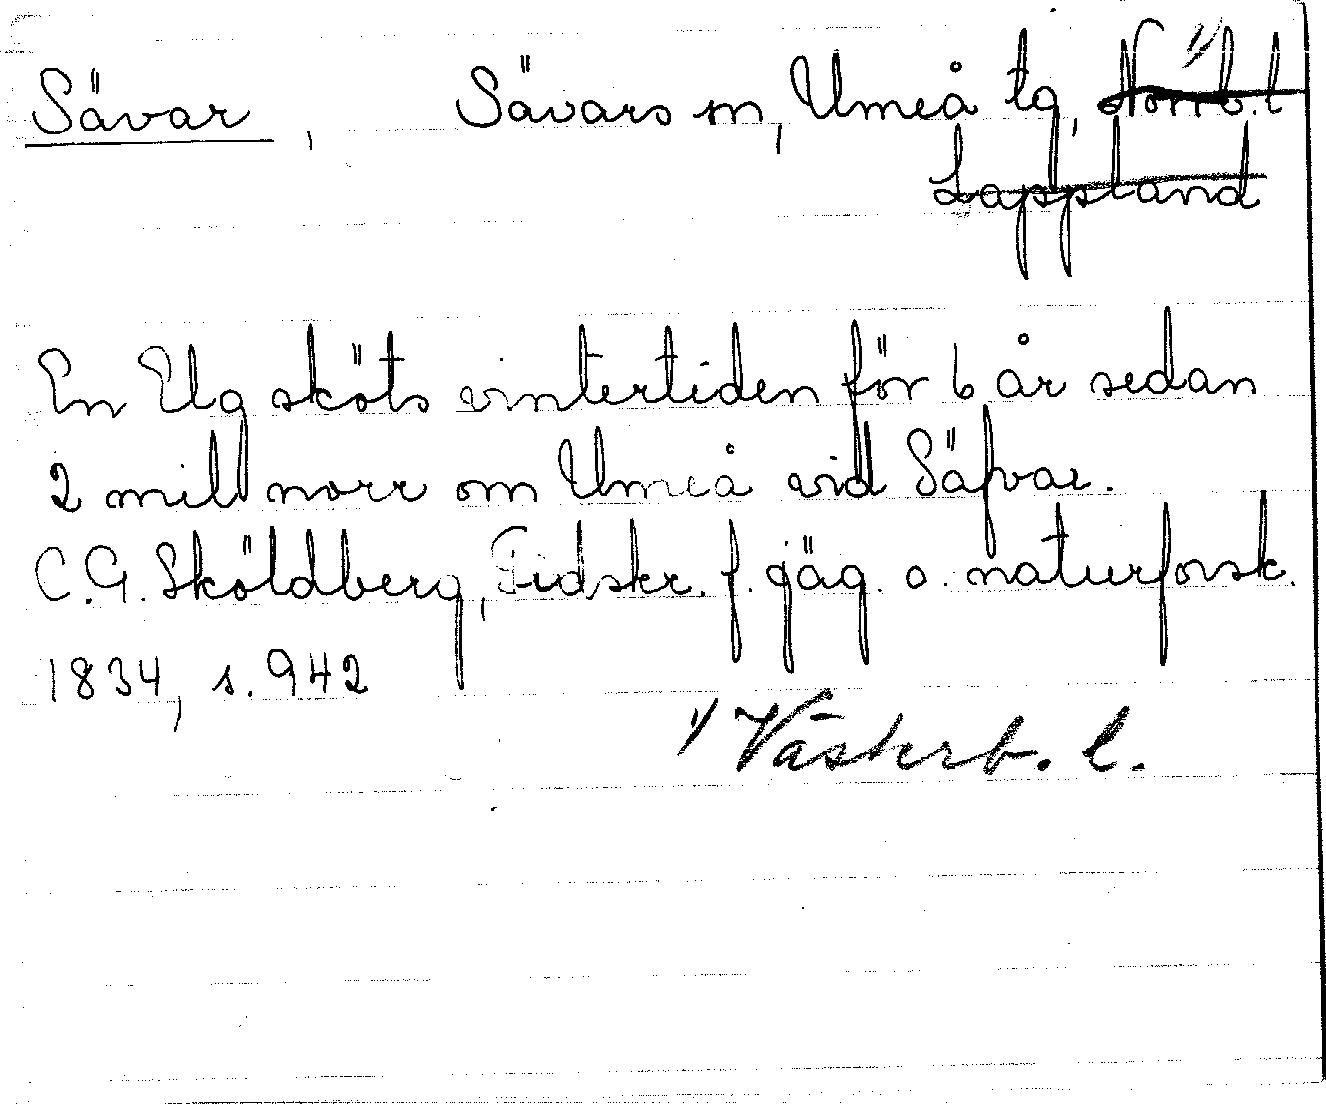 Sävar, Sävars sn, Umeå tg, Norrb. l 1)
Lappland
En Elg sköts vintertiden för 6 år sedan
2 mil norr om Umeå vid Säfvar.
C.G. Sköldberg, Tidskr. f. jäg. o. naturforsk.
1834, s. 942
1) Västerb. l.